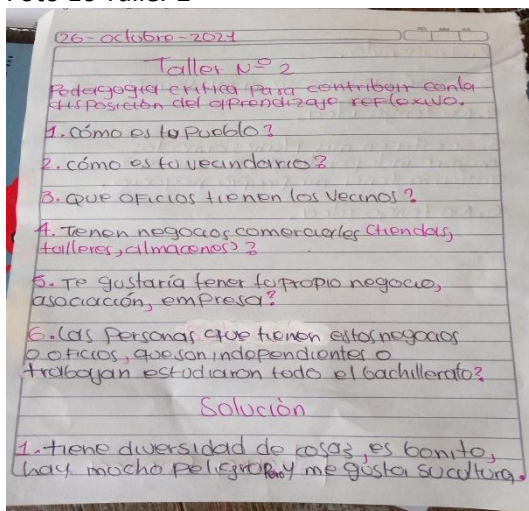 26-octubre-2021
Taller Nº 2
Pedagogía crítica para contribuir con la
disposición del aprendizaje reflexivo.
1. Cómo es tu pueblo?
2. cómo es tu vecindario?
3. Que oficios tienen los vecinos?
4. Tienen negocios comerciales (tiendas,
talleres, almacenes)?
5. Te gustaría tener tu propio negocio,
asociación, empresa?
6. Las personas que tienen estos negocios
o oficios, que son independientes o
trabajan estudiaron todo el bachillerato?
Solución
1. tiene diversidad de cosas, es bonito,
hay mucho peligro pero y me gusta su cultura.